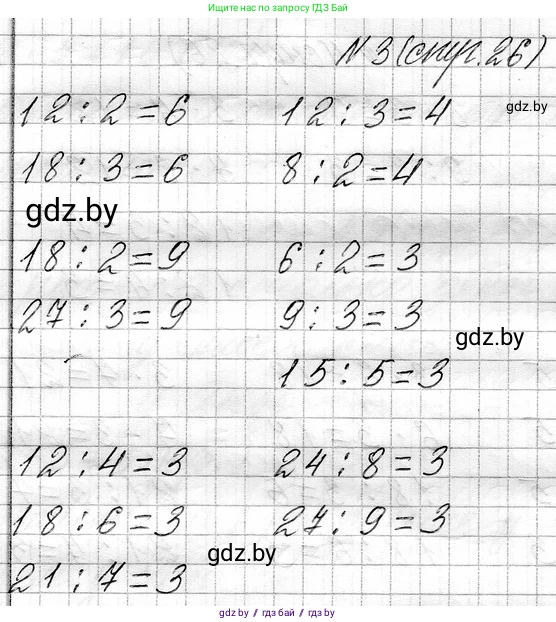 Пишите нам по запросу ГДЗ Бай
N 3 (стр. 26)
12 : 2 = 6   12 : 3 = 4
gdz.by
18 : 3 = 6   8 : 2 = 4
gdz.by
18 : 2 = 9   6 : 2 = 3
27 : 3 = 9   9 : 3 = 3
gdz.by
15 : 5 = 3
12 : 4 = 3   24 : 8 = 3
18 : 6 = 3   27 : 9 = 3
gdz.by
21 : 7 = 3
gdz.by // гдз бай // gdz.by